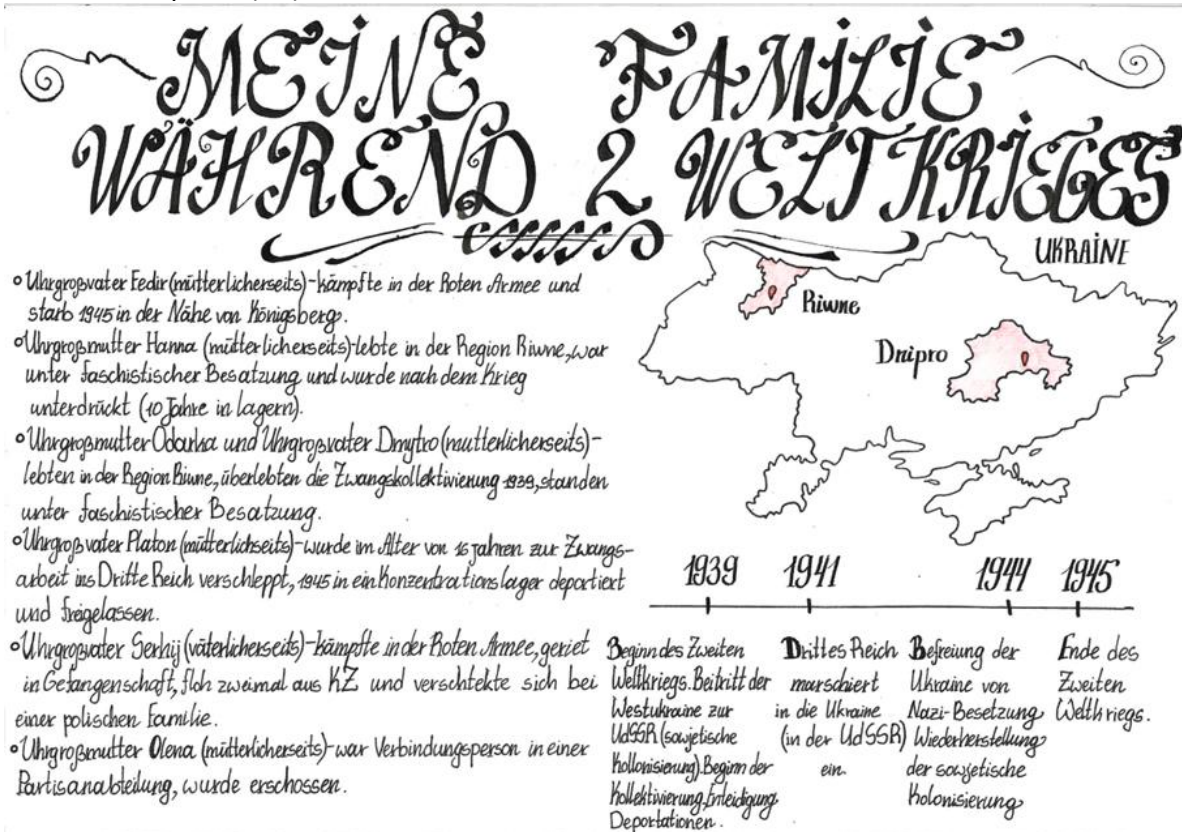 MEINE FAMILIE
WÄHREND 2 WELTKRIEGES
Uhrgroßvater Fedir (mütterlicherseits)-kämpfte in der Roten Armee und
starb 1945 in der Nähe von Königsberg.
Uhrgroßmutter Hanna (mütterlicherseits)-lebte in der Region Riwne, war
unter faschistischer Besatzung und wurde nach dem Krieg
unterdrückt (10 Jahre in lagern).
Uhrgroßmutter Odarka und Uhrgroßvater Dmytro (mutterlicherseits)-
lebten in der Region Riwne, überlebten die Zwangskollektivierung 1939, standen
unter faschistischer Besatzung.
Uhrgroßvater Platon (mütterlichseits)-wurde im Alter von 16 jahren zur Zwangs-
arbeit ins Dritte Reich verschleppt, 1945 in ein Konzentrationslager deportiert
und freigelassen.
Uhrgroßvater Serhij (väterlicherseits)-kämpfte in der Roten Armee, geriet
in Gefangenschaft, floh zweimal aus KZ und verschtekte sich bei
einer polischen Familie.
Uhrgroßmutter Olena (mütterlicherseits)-war Verbindungsperson in einer
Partisanabteilung, wurde erschossen.
UKRAINE
Riwne
Dnipro
1939 1941 1944 1945
Beginn des Zweiten
Weltkriegs. Beitritt der
Westukraine zur
UdSSR (sowjetische
Kollonisierung). Beginn der
Kollektivierung, Enteidigung
Deportationen.
Drittes Reich
marschiert
in die Ukraine
(in der UdSSR)
ein.
Befreiung der
Ukraine von
Nazi-Besetzung,
Wiederherstellung
der sowjetische
Kolonisierung
Ende des
Zweiten
Weltkriegs.